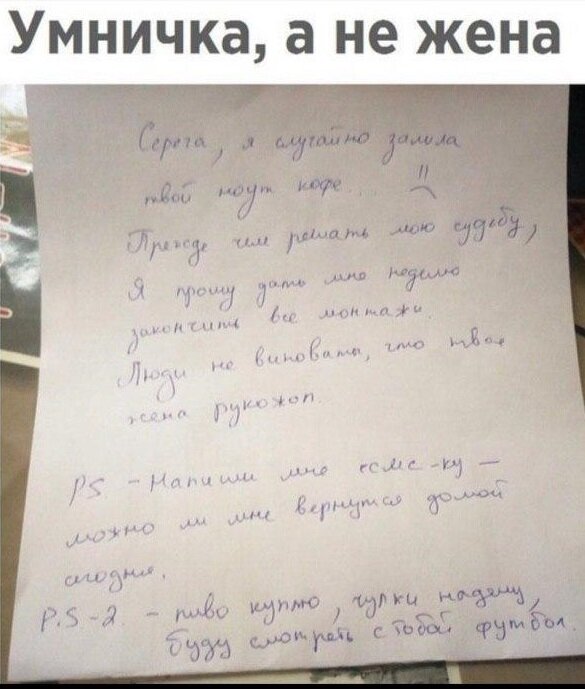 Умничка, а не жена
Серега, я случайно залила
твой ноут кофе...
Прежде чем решать мою судьбу,
Я прошу дать мне неделю
закончить все монтажи.
Люди не виноваты, что твоя
жена рукожоп.
PS - Напиши мне есмс-ку –
можно ли мне вернутся домой
сегодня.
P.S-2. - пиво куплю, чулки надену,
буду смотреть с тобой футбол.